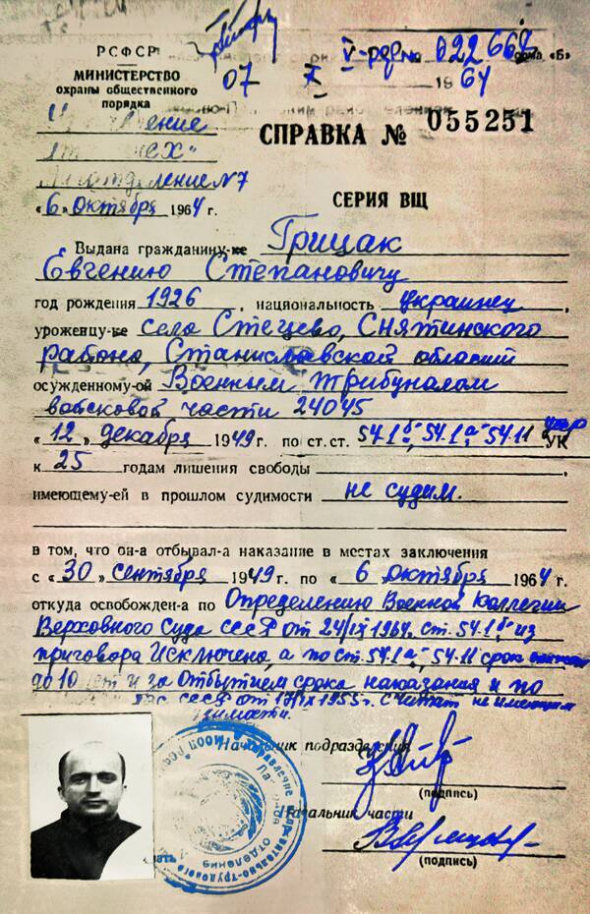 РСФСР
V-рдв № 022667 форма „Б"
МИНИСТЕРСТВО
охраны общественного
порядка
07 X 1964
СПРАВКА № 055251
отделение №7
СЕРИЯ ВЩ
„6„ октября 1964 г.
Выдана гражданину-ке Грицак
Евгению Степановичу
год рождения 1926, национальность украинец,
уроженцу-ке село Стецево, Снятинского
района, Станиславской области
осужденному-ой Военным трибуналом
войсковой части 24045
„12„ декабря 1949 г. по ст.ст. 54.1б, 54.1а 54.11 УК
к 25 годам лишения свободы
имеющему-ей в прошлом судимости не судим.
в том, что он-а отбывал-а наказание в местах заключения
с „30„ сентября 1949 г. по „6 октября 1964 г.
откуда освобожден-а по Определению Военной Коллегии
Верховного Суда СССР от 24/IX 1964. ст. 54.1б из
приговора исключено, а по ст. 54.1а, 54.11 срок
до 10 лет и за отбытием срока наказания и по
СССР от 17/IX 1955 г. считат не имеющим
Начальник подразделения
(подпись)
Начальник части
(подпись)